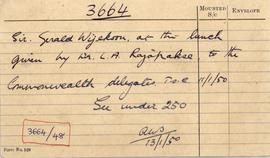 3664
MOUNTED
S/C
ENVELOPE
Sir. Gerald Wijekoon, at the lunch
given by Dr. L.A. Rajapakse, to the
Commonwealth delegates. 11/1/50
See under 250
13/1/50
3664/48